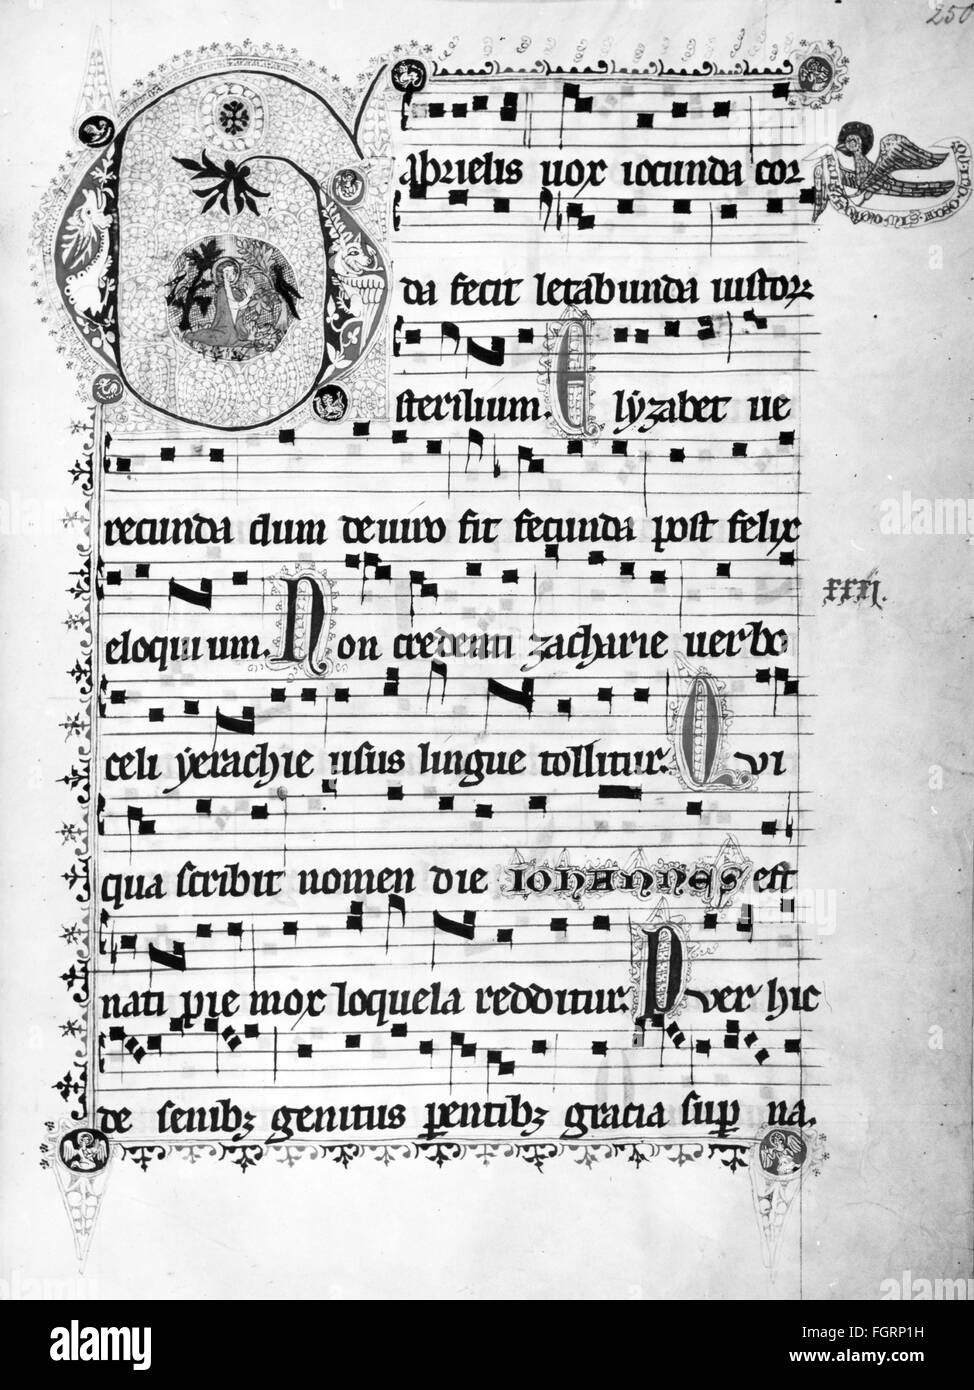 250
Gabrielis vox iocunda cor
da fecit letabunda iustorz
sterilium. Elyzabet ve
recunda dum deviro fit fecunda post felix
eloquium. Non credenti zacharie verbo
xxxj.
celi yerachie usus lingue tollitur. Qvi
qua scribit nomen die IOHANNES est
nati pie mox loquela redditur. Pver hic
de senibz genitus pentibz gracia sup na.
alamy
Image ID: FGRP1H
www.alamy.com